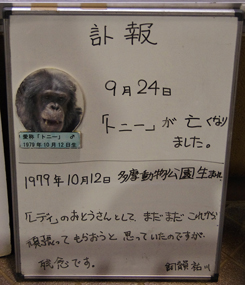 訃報
9月24日
「トニー」が亡くなり
ました。
愛称「トニー」♂
1979年10月12日生
1979年10月12日 多摩動物公園生まれ
「レディ」のおとうさんとして、まだまだこれから
頑張ってもらおうと思っていたのですが、
残念です。
飼育係